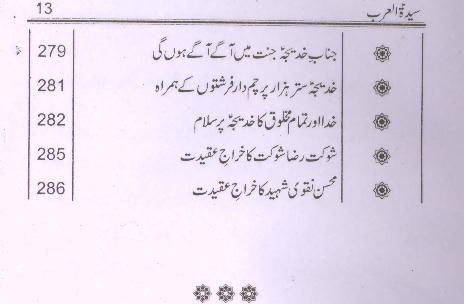 سیدۃ العرب 13
جناب خدیجہؑ جنت میں آگے آگے ہوں گی 279
خدیجہؑ ستر ہزار پرچم دار فرشتوں کے ہمراہ 281
خدا اور تمام مخلوق کا خدیجہؑ پر سلام 282
شوکت رضا شوکت کا خراج عقیدت 285
محسن نقوی شہید کا خراج عقیدت 286